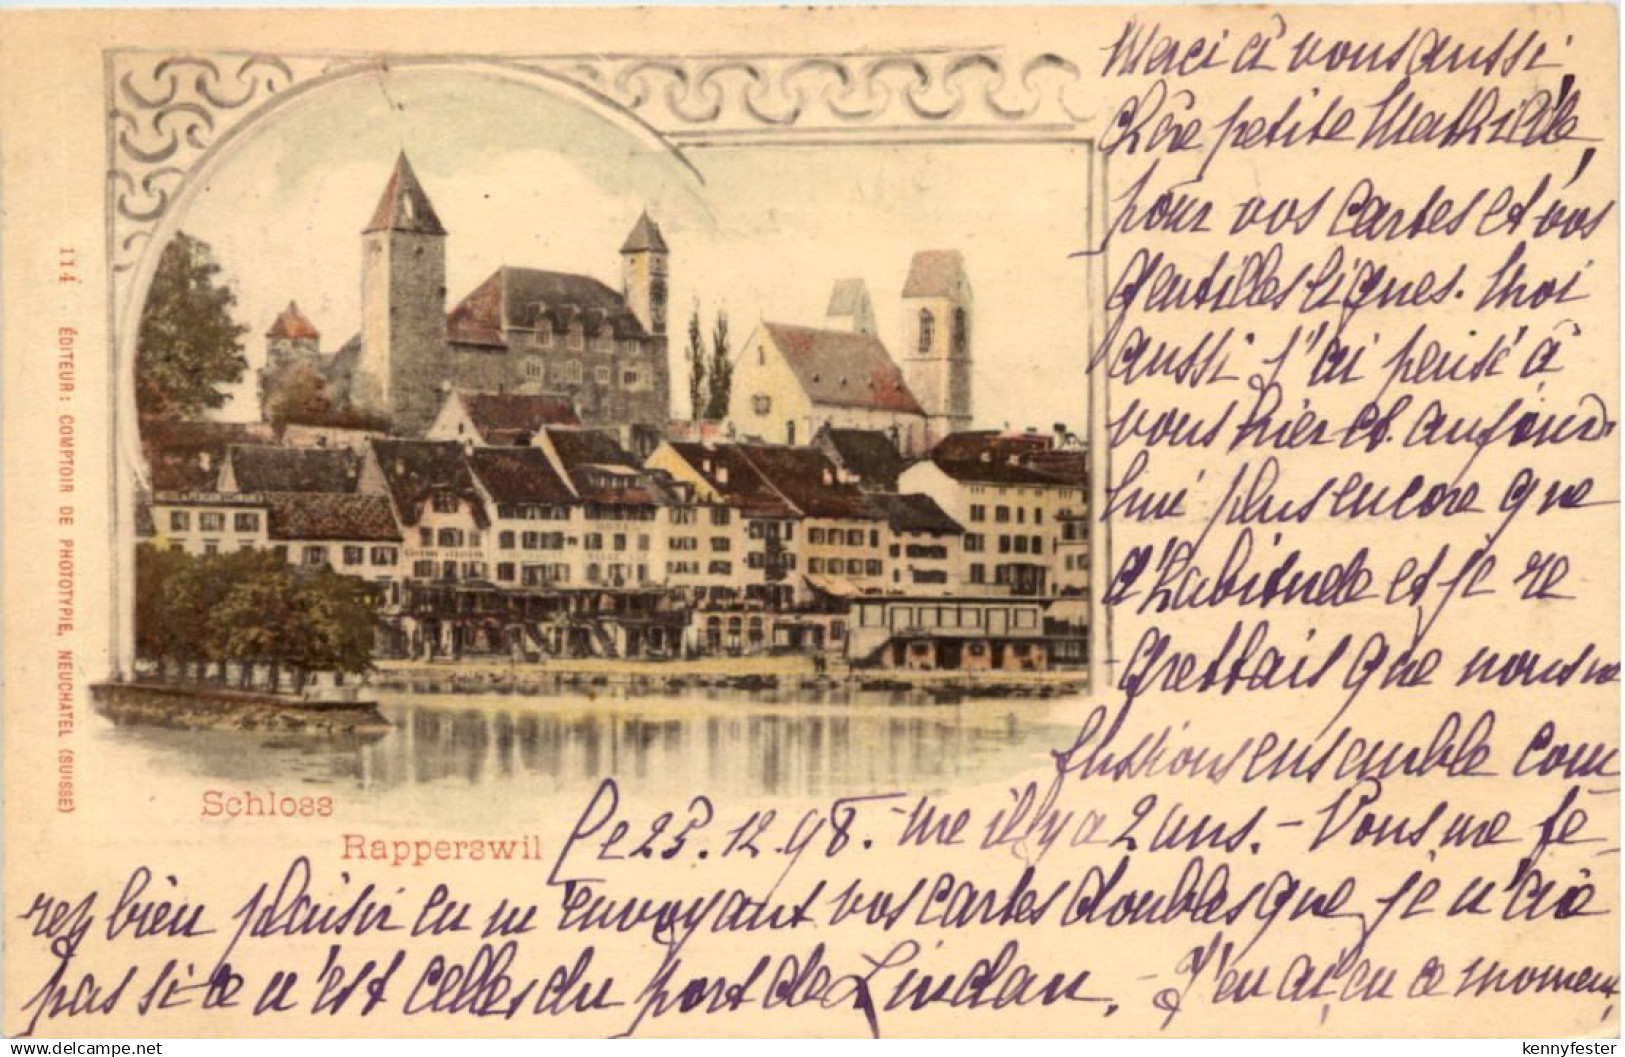 Merci à vous aussi,
chère petite Mathilde,
pour vos cartes et vos
gentilles lignes. Moi
aussi j'ai pensé à
vous hier et aujourd-
hui plus encore que
d'habitude et je re
grettais que nous ne
fussions ensemble com
Le 25.12.98. - me il y a 2 ans. - Vous me fe-
rez bien plaisir en m'envoyant vos cartes doubles que je n'ai
pas si ce n'est celles du port de Lindau. - J'en ai, en ce moment,
Schloss
Rapperswil
114 . ÉDITEUR: COMPTOIR DE PHOTOTYPIE, NEUCHATEL (SUISSE)
kennyfester